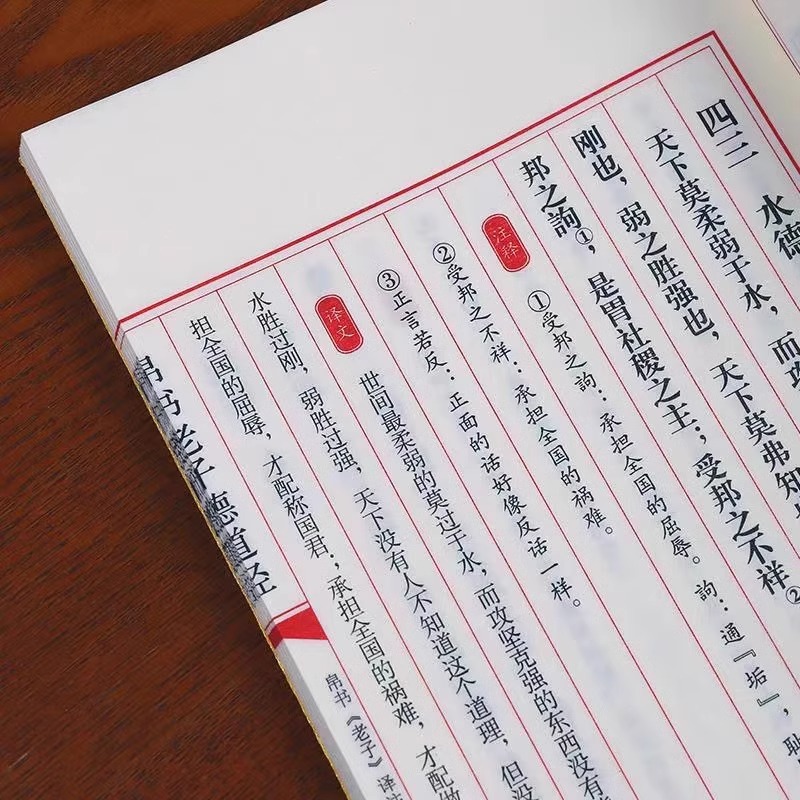 四三 水德
天下莫柔弱于水，而攻
刚也，弱之胜强也，天下莫弗知
邦之訽①，是胃社稷之主；受邦之不祥②
注释
①受邦之訽：承担全国的屈辱。訽：通『垢』，耻
②受邦之不祥：承担全国的祸难。
③正言若反：正面的话好像反话一样。
译文
世间最柔弱的莫过于水，而攻坚克强的东西没有
水胜过刚，弱胜过强，天下没有人不知道这个道理，但没
担全国的屈辱，才配称国君；承担全国的祸难，才配做
帛书老子德道经
帛书《老子》译注